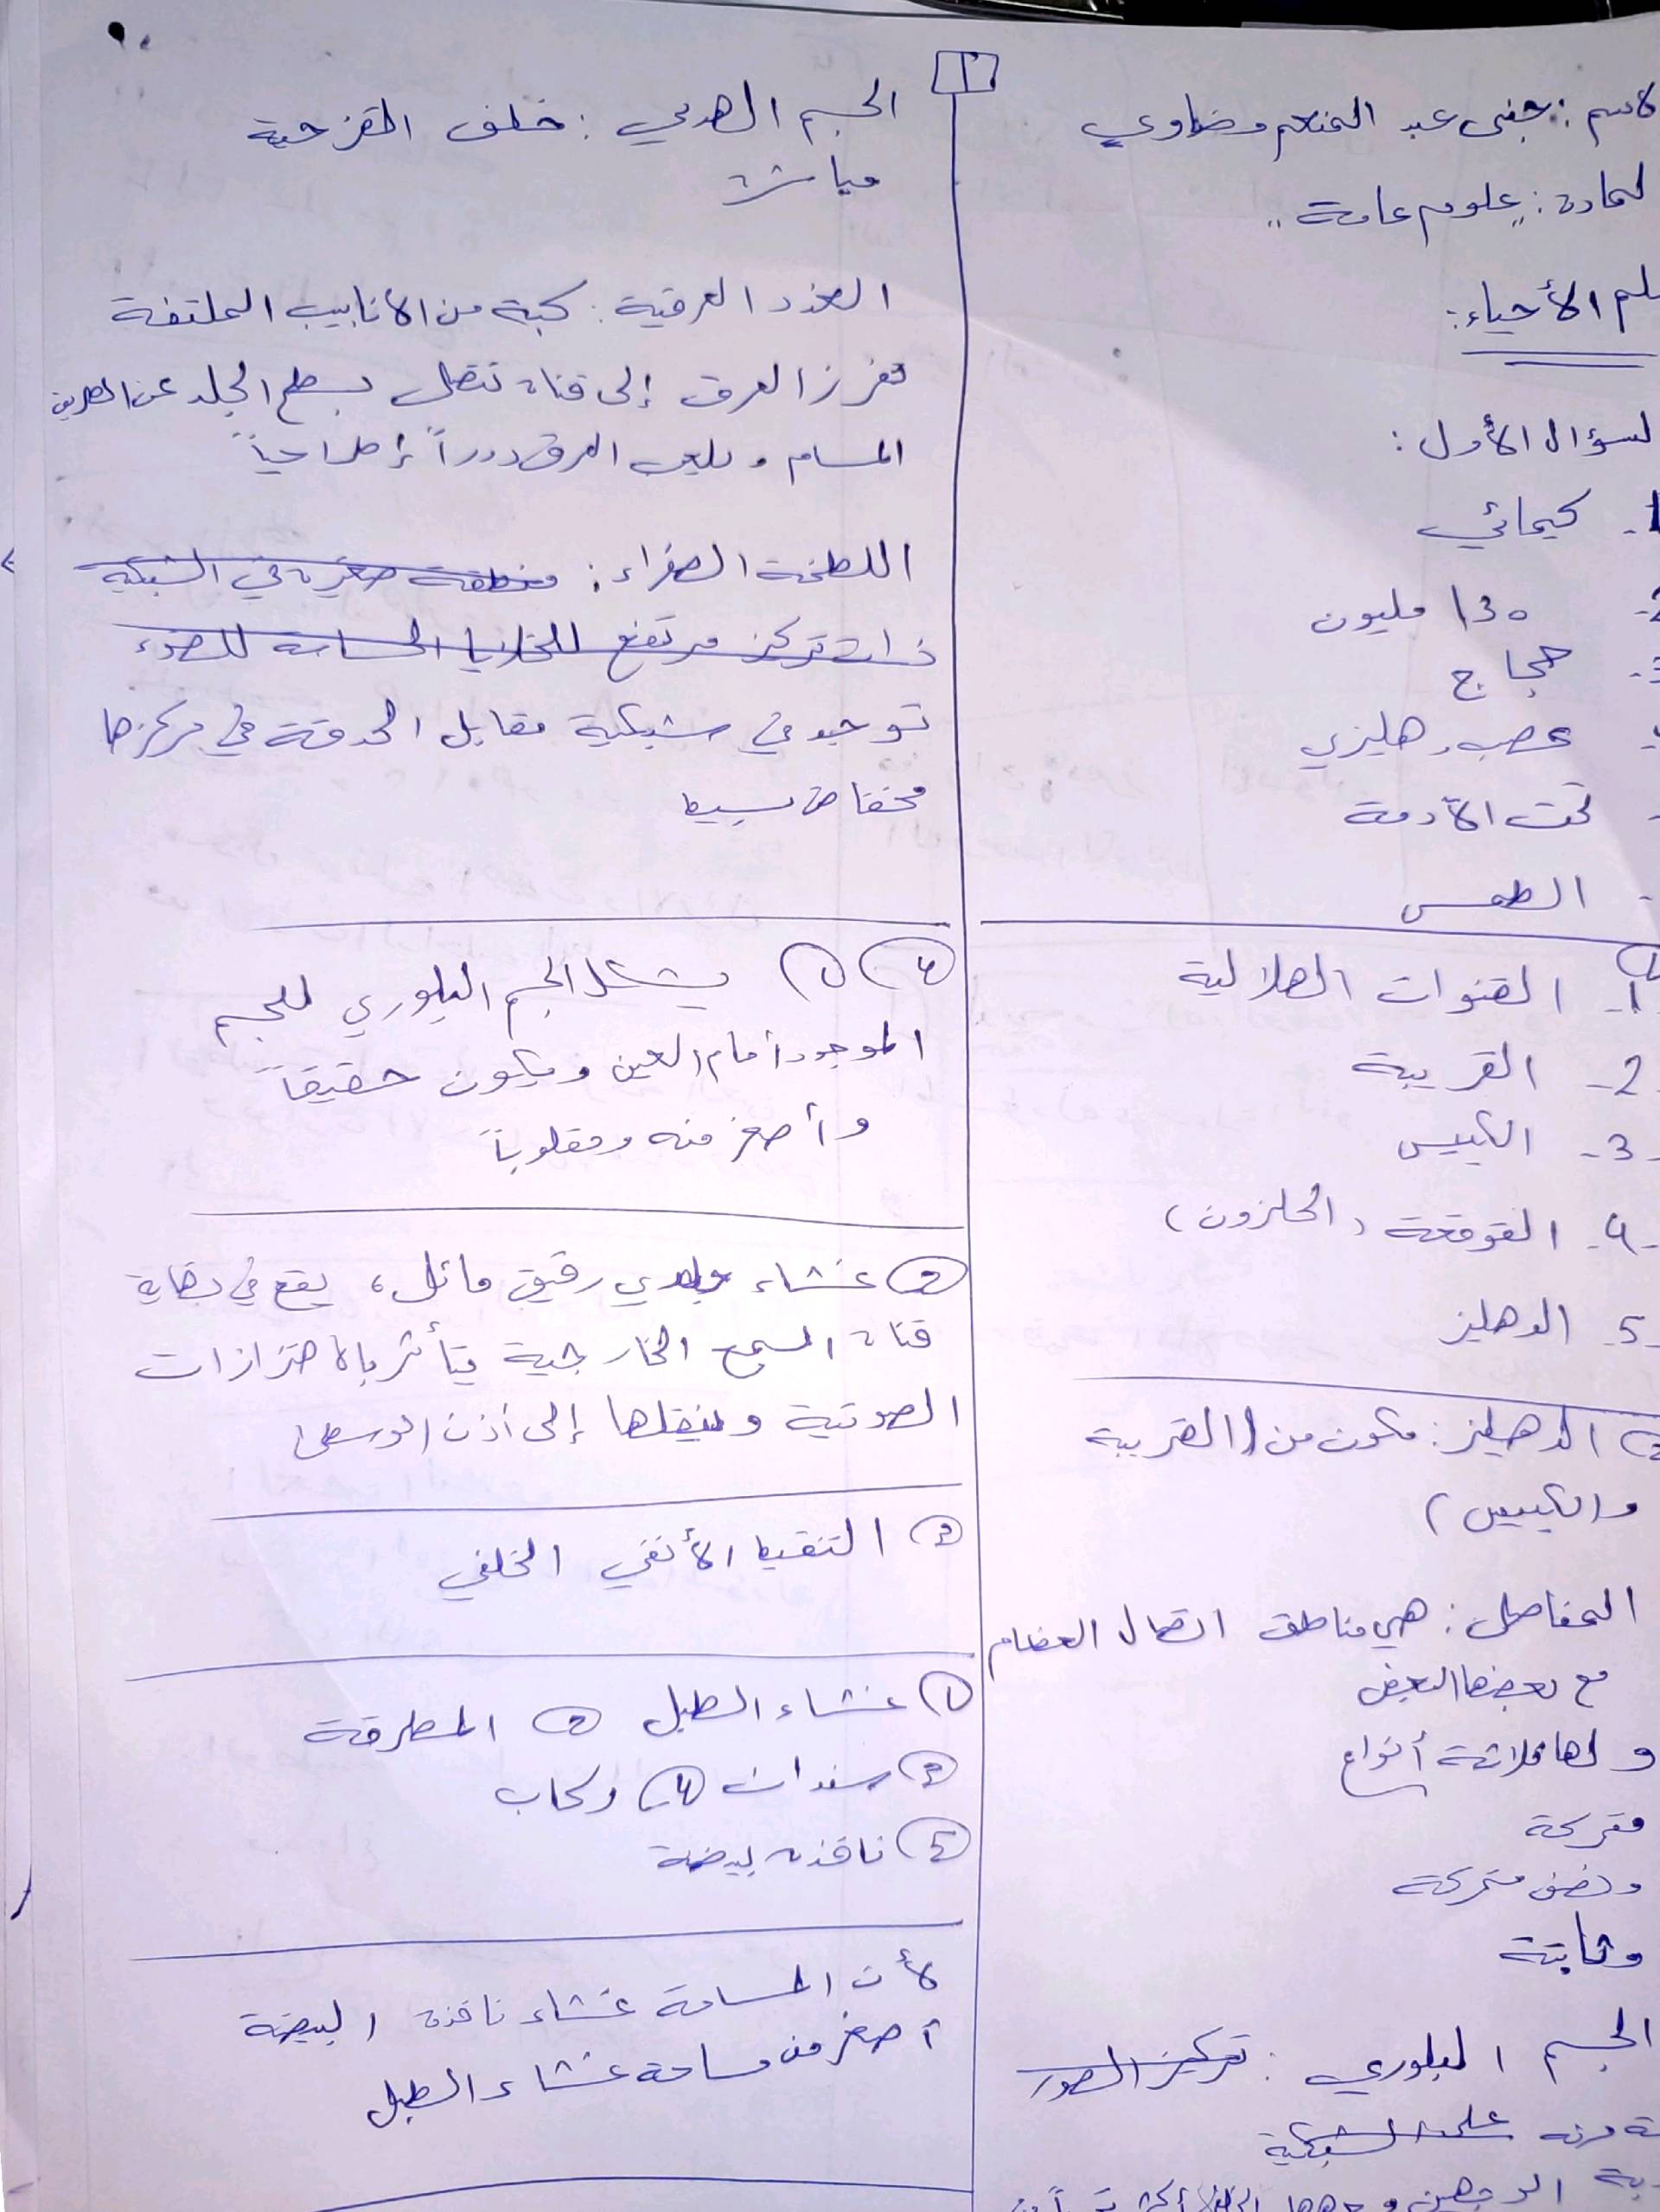 الاسم : جنى عبد المنعم مضاوي
المادة : علوم عامة ..
علم الأحياء :
السؤال الأول :
1- كيمائي
2- 130 مليون
3- حجاج
عصب دهليزي
تحت الأدمة
الطعمس
1- القنوات الهلالية
2- القريبة
3- الكييس
4- القوقعة (الحلزون)
5- الدهليز
الدهليز : مكون من (القريبة
والكييس)
المفاصل : هي مناطق اتصال العظام
مع بعضها البعض
ولها ثلاثة أنواع
متحركة
ونصف متحركة
وثابتة
الجسم البلوري : تركيز الصور
مرنة على الشبكية
الوجهين وجهها
1
الجسم الهدبي : خلف القزحية
مباشرة
الغدد العرقية : كبة من الانابيب الملتفة
تفرز العرق إلى قناة تتصل بسطح الجلد عن طريق
المسام ويلعب العرق دوراً إطراحياً
اللطخة الصفراء : منطقة صغيرة في الشبكية
ذات تركيز مرتفع للخلايا الحساسة للضوء
توجد في شبكية مقابل الحدقة في مركزها
مخفاض بسيط
4) 1) يشكل الجسم البلوري للجسم
الموجود أمام العين ويكون حقيقاً
وأصغر منه ومقلوباً
2) غشاء جلدي رقيق مائل، يقع في نهاية
قناة السمع الخارجية يتأثر بالاهتزازات
الصوتية وينقلها إلى أذن الوسطى
3) التنقيط الأنفي الخلفي
1) غشاء الطبل 2) المطرقة
3) سندان 4) ركاب
5) نافذة بيضة
لأن المساحة غشاء نافذة البيضة
أصغر من مساحة غشاء الطبل